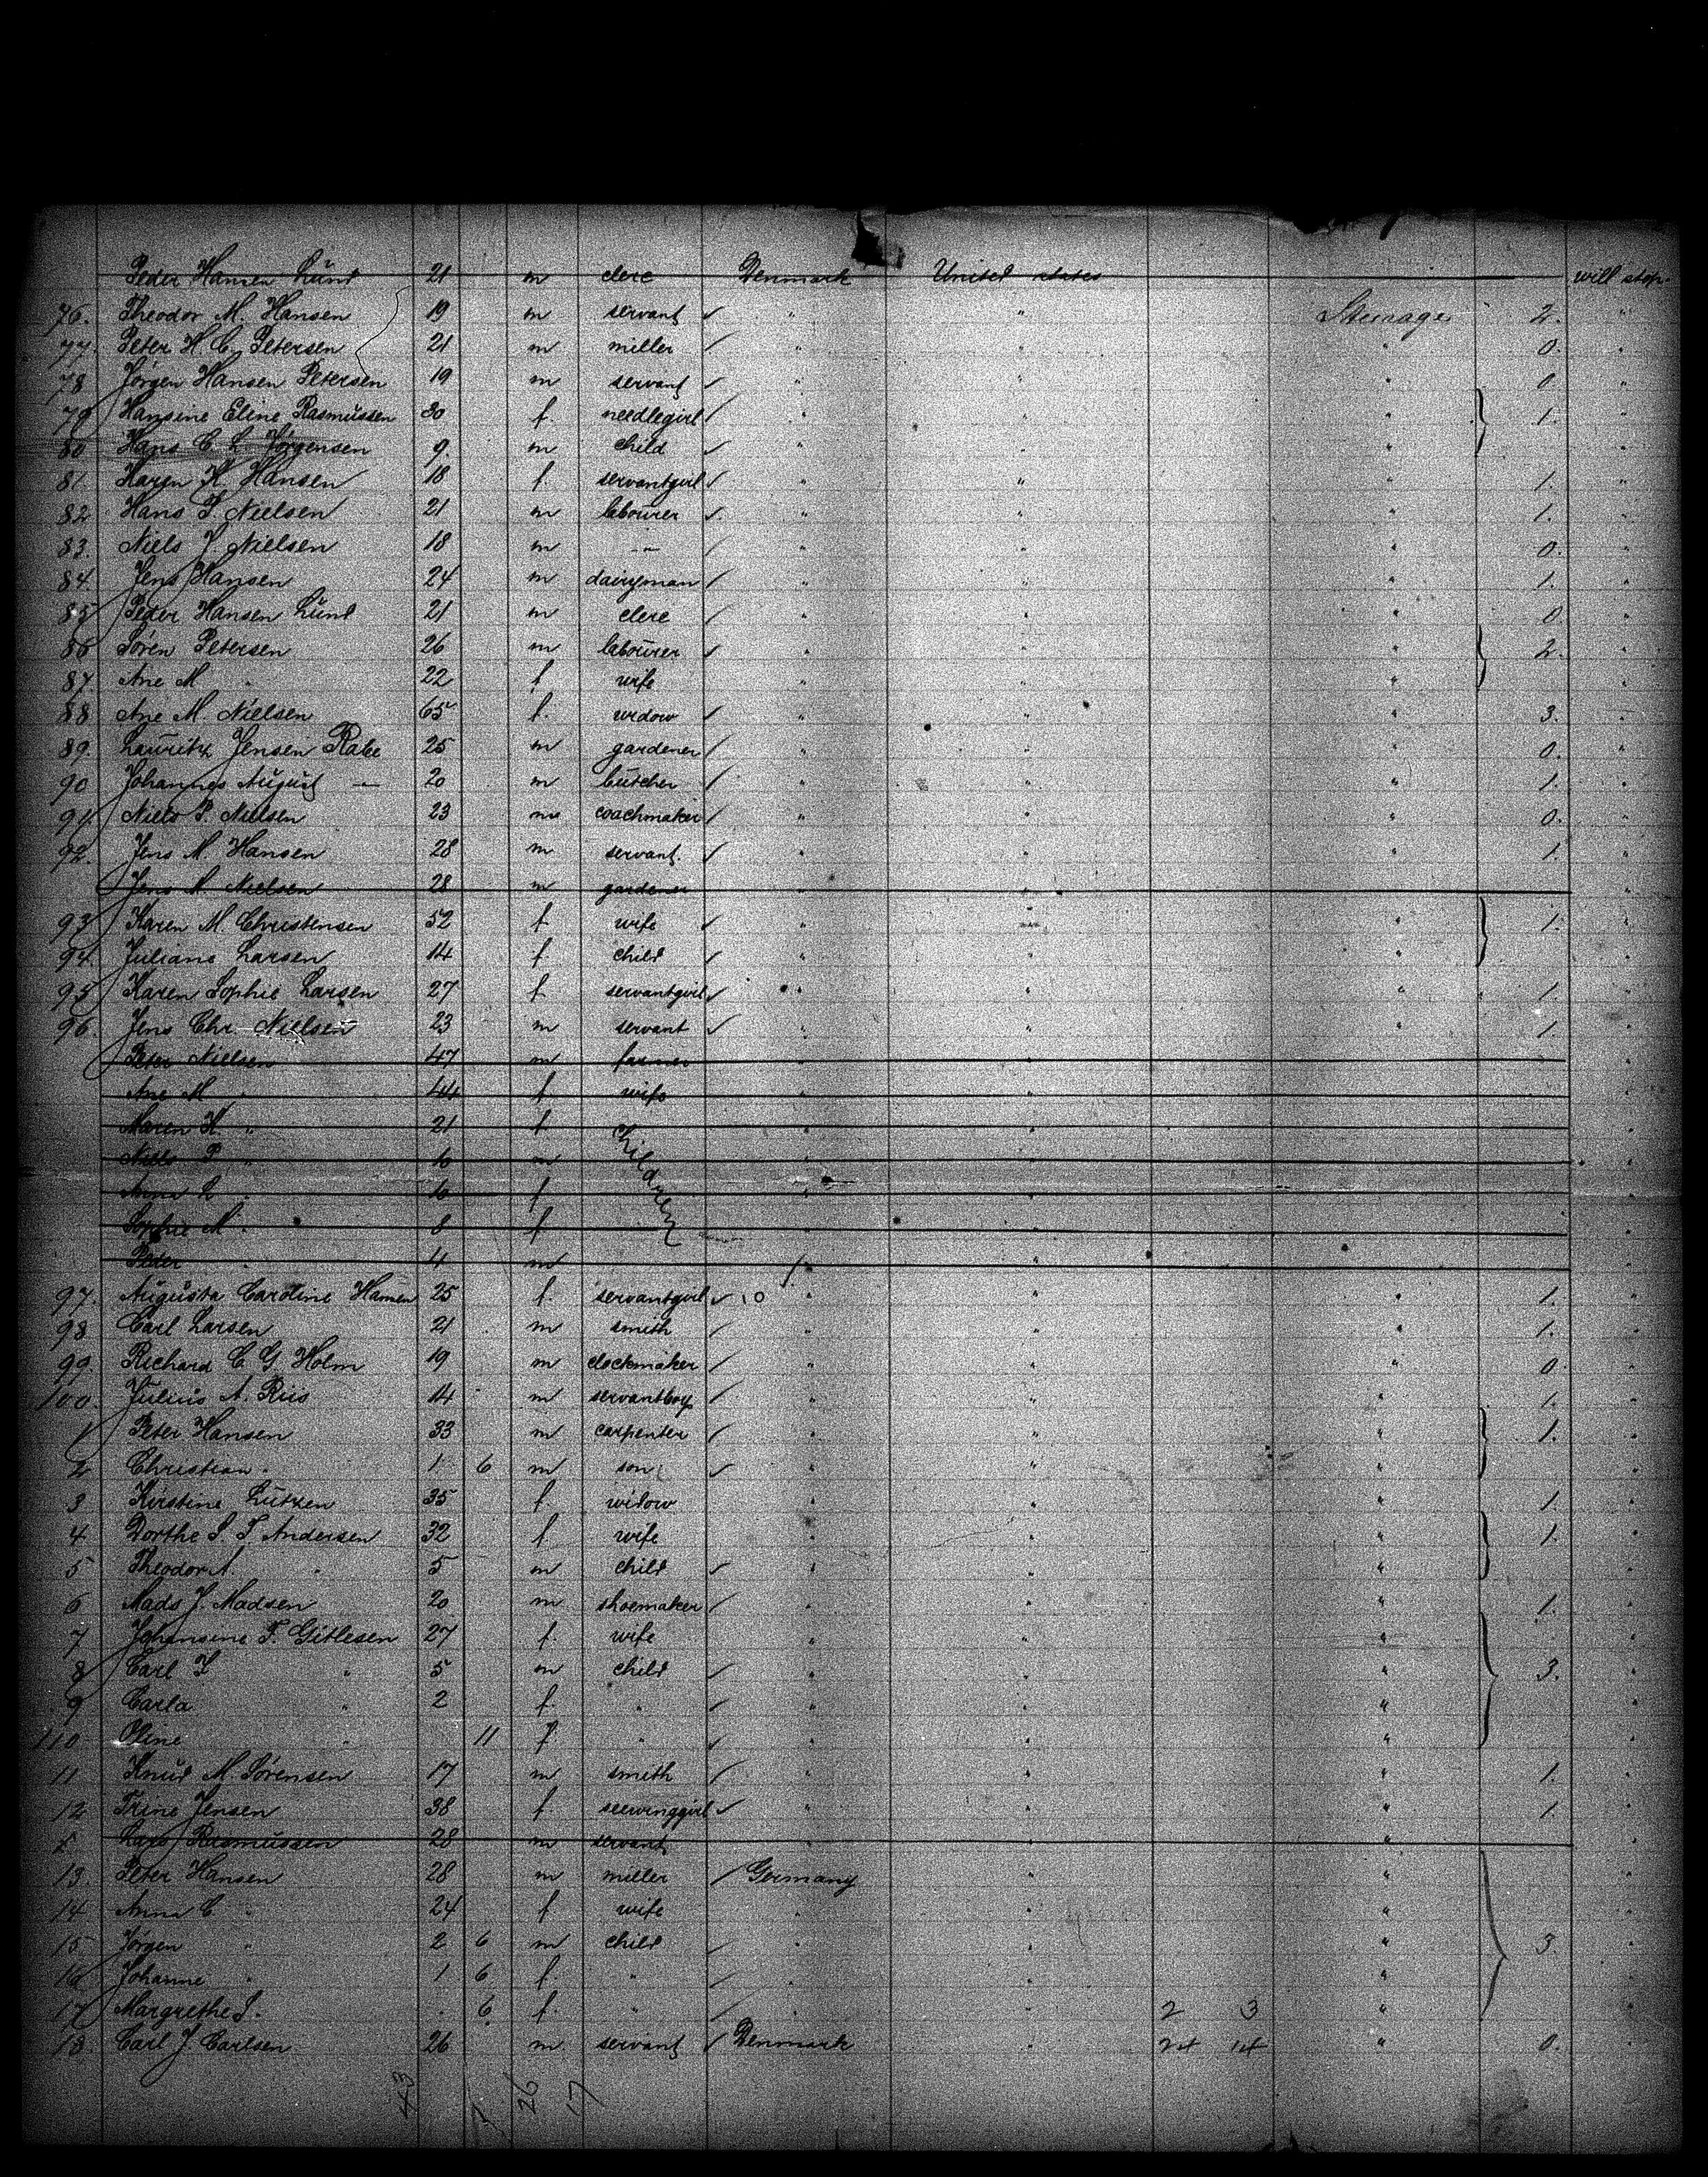 Peder Hansen Lund 21 m clerc Denmark United states will stop
76. Theodor M. Hansen 19 m servant " " Steerage 2. "
77. Peter H. C. Petersen 21 m miller " " " 0. "
78 Jörgen Hansen Petersen 19 m servant " " " 0 "
79 Hansine Eline Rasmussen 30 f. needlegirl " " " 1. "
80 Hans C. L. Jörgensen 9. m child " " "
81. Karen K. Hansen 18 f. servantgirl " " " 1. "
82 Hans P. Nielsen 21 m labourer " " " 1. "
83. Niels J. Nielsen 18 m -"- " " " 0. "
84. Jens Hansen 24 m dairyman " " " 1. "
85 Peder Hansen Lund 21 m clerc " " " 0 "
86 Sören Petersen 26 m labourer " " " 2. "
87. Ane M " 22 f wife " " "
88 Ane M. Nielsen 65 f. widow " " " 3. "
89. Lauritz Jensen Rabe 25 m gardener " " " 0. "
90 Johannes August — 20 m butcher " " " 1. "
91 Niels P. Nielsen 23 m coachmaker " " " 0. "
92. Jens M. Hansen 28 m servant. " " " 1. "
Jens M. Nielsen 28 m gardener " " "
93 Karen M. Christensen 52 f wife " " " 1. "
94. Juliane Larsen 14 f. child " " "
95 Karen Sophie Larsen 27 f. servantgirl " " " 1. "
96. Jens Chr. Nielsen 23 m servant " " " 1. "
Peter Nielsen 47 m farmer " " "
Ane M " 44 f. wife " " "
Maren K " 21 f. children " " "
Niels P " m " " "
Anna L " f " " "
Sophie M " 8 f " " "
Peder " 4 m " " "
97. Augusta Caroline Hansen 25 f. servantgirl 10 " " " 1. "
98 Carl Larsen 21 m smith " " " 1. "
99. Richard C. G. Holm 19 m clockmaker " " " 0. "
100. Julius A. Riis 14 m servantboy " " " 1. "
1 Peter Hansen 33 m carpenter " " " 1. "
2 Christian " 1 6 m son " " "
3 Kirstine Lützen 35 f. widow " " " 1. "
4 Dorthe S. T. Andersen 32 f. wife " " " 1. "
5 Theodor A. " 5 m child " " "
6 Mads J. Madsen 20 m shoemaker " " " 1. "
7 Johansine F. Gitlesen 27 f. wife " " "
8 Carl " 5 m child " " " 3. "
9 Carla " 2 f. " " " "
110 Oline " 11 f. " " " "
11 Knud M. Sörensen 17 m smith " " " 1. "
12 Trine Jensen 38 f. seewinggirl " " " 1 "
Lars Rasmussen 28 m servant " " "
13. Peter Hansen 28 m miller Germany " " "
14 Anna C " 24 f wife " " "
15 Jörgen " 2 6 m child " " " 3. "
16 Johanne " 1 6 f. " " " "
17 Margrethe S. 6 f. " " " 2 3 "
18. Carl J. Carlsen 26 m servant Denmark " 24 14 " 0. "
43 7 26 17